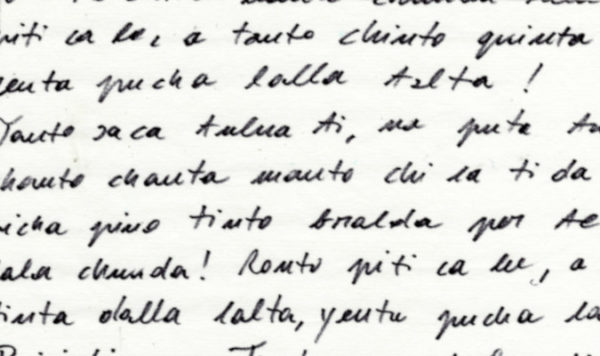 piti ca le, a tanto chinto quinta
yenta pucha lalla talta!
Tanto zaca tulua ti, na puta
chanto chanta manto chi la ti da
picha pino tinto bralda por te
lala chunda! Ronto piti ca le, a
tinta dalla lalta, yenta pucha la